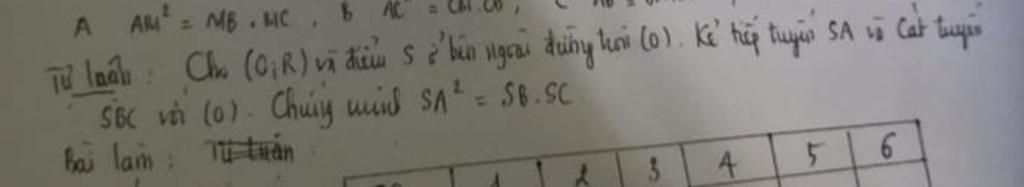 A AM² = MB . MC , B AC² = CM.CD ,
Tự luận : Cho (O;R) và điểm S ở bên ngoài đường tròn (O). Kẻ tiếp tuyến SA và cát tuyến
SBC với (O). Chứng minh SA² = SB.SC
Bài làm : Tự luận
1 2 3 4 5 6